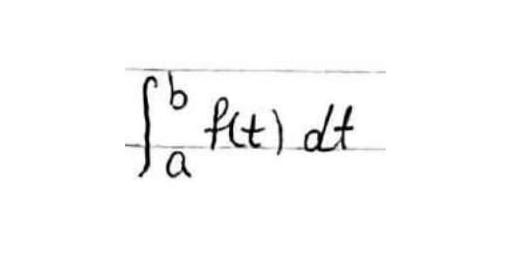 ∫_a^b f(t) dt